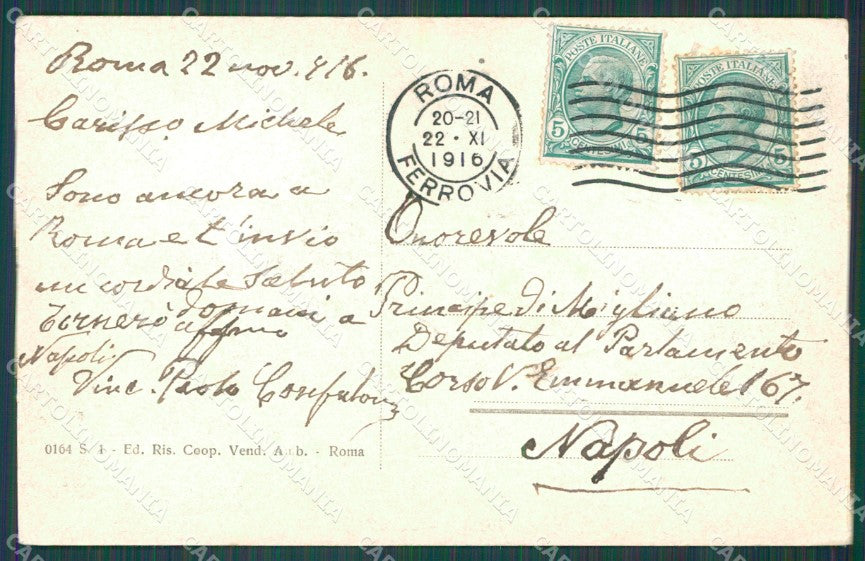 Roma 22 nov. 916.
Carisso Michele
Sono ancora a
Roma e t'invio
un cordiale saluto
domani a
Tornerò
Napoli
Vinc. Paolo
0164 S. 1 - Ed. Ris. Coop. Vend. Amb. - Roma
ROMA
20-21
22 · XI
1916
FERROVIA
POSTE ITALIANE
5 5
CENTESIMI
POSTE ITALIANE
5 5
CENTESIMI
Onorevole
Principe di Migliano
Deputato al Parlamento
Corso V. Emmanuele 167.
Napoli
CARTOLINOMANIA